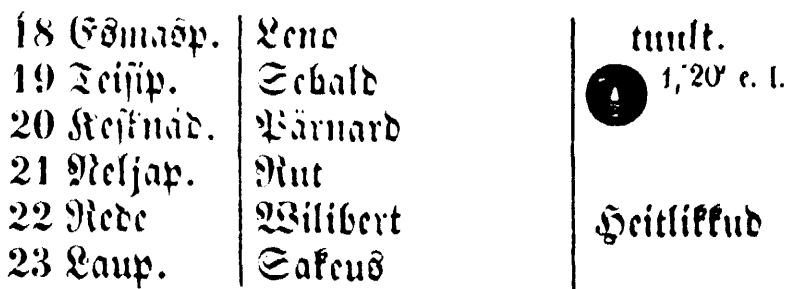 18 Esmasp. Leno tuult.
19 Teisip. Sebald 1, 20 e. l.
20 Kesknäd. Pärnard
21 Neljap. Rut
22 Rede Wilibert Heitlikkud
23 Laup. Sakeus